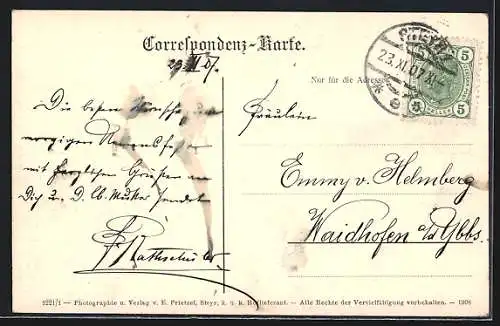 Correspondenz-Karte.
23/XI 07.
Nur für die Adresse
STEYR
23.XI.07
5 5
5 5
Die besten Wünsche zum
morgigen Namensfeste
mit herzlichen Grüßen an
Dich u. D. lb. Mutter sendet
Fräulein
Emmy v. Helmberg
Waidhofen a/d Ybbs.
2221/1 — Photographie u. Verlag v. E. Prietzel, Steyr, k. u. k. Hoflieferant. — Alle Rechte der Vervielfältigung vorbehalten. — 1908